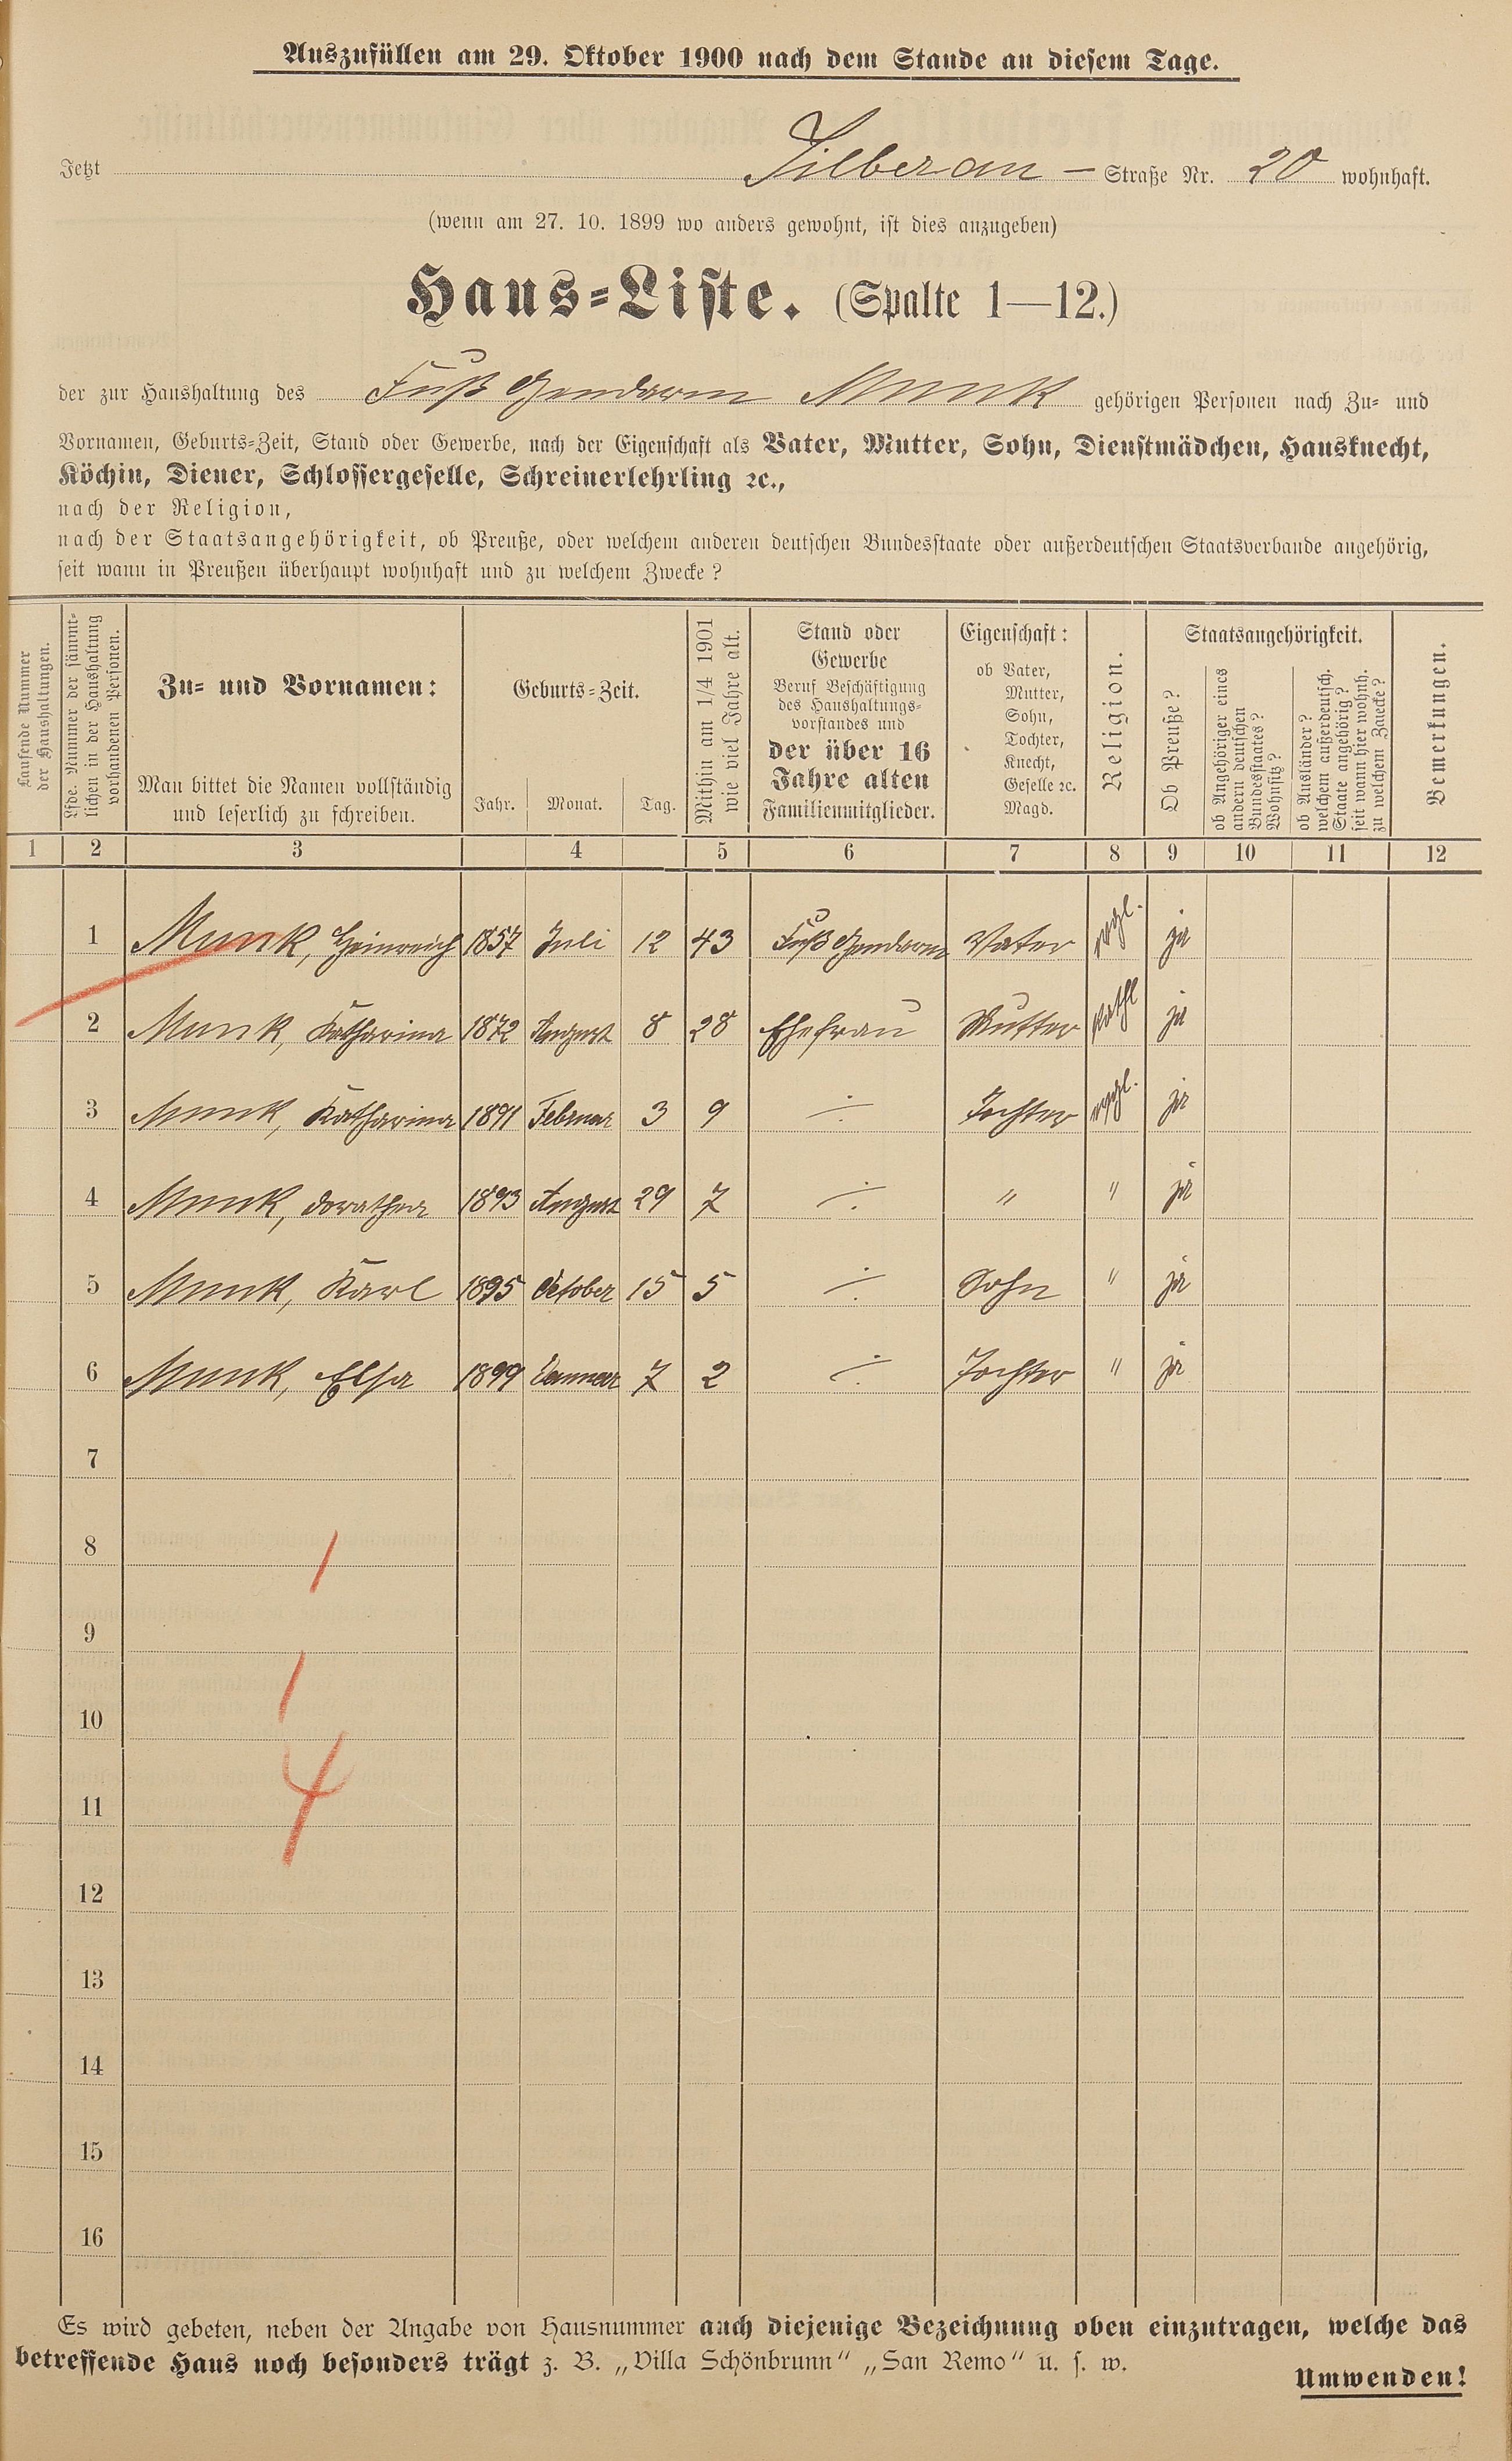 Auszufüllen am 29. Oktober 1900 nach dem Stande an diesem Tage.
Jetzt Silberau – Straße Nr. 20 wohnhaft.
(wenn am 27. 10. 1899 wo anders gewohnt, ist dies anzugeben)
Haus-Liste. (Spalte 1—12.)
der zur Haushaltung des Fuß Gendarm Munk gehörigen Personen nach Zu- und
Vornamen, Geburts-Zeit, Stand oder Gewerbe, nach der Eigenschaft als Vater, Mutter, Sohn, Dienstmädchen, Hausknecht,
Köchin, Diener, Schlossergeselle, Schreinerlehrling ꝛc.,
nach der Religion,
nach der Staatsangehörigkeit, ob Preuße, oder welchem anderen deutschen Bundesstaate oder außerdeutschen Staatsverbande angehörig,
seit wann in Preußen überhaupt wohnhaft und zu welchem Zwecke?
Laufende Nummer
der Haushaltungen.
Lfde. Nummer der sämmt-
lichen in der Haushaltung
vorhandenen Personen.
Zu- und Vornamen:
Man bittet die Namen vollständig
und leserlich zu schreiben.
Geburts-Zeit.
Jahr. Monat. Tag.
Mithin am 1/4 1901
wie viel Jahre alt.
Stand oder
Gewerbe
Beruf Beschäftigung
des Haushaltungs-
vorstandes und
der über 16
Jahre alten
Familienmitglieder.
Eigenschaft:
ob Vater,
Mutter,
Sohn,
Tochter,
Knecht,
Geselle ꝛc.
Magd.
Religion.
Staatsangehörigkeit.
Ob Preuße?
ob Angehöriger eines
andern deutschen
Bundesstaates?
Wohnsitz?
ob Ausländer?
welchem außerdeutsch.
Staate angehörig?
seit wann hier wohnh.
zu welchem Zwecke?
Bemerkungen.
1 2 3 4 5 6 7 8 9 10 11 12
1 Munk, Heinreich 1857 Juli 12 43 Fuß Gendarm Vater evgl. ja
2 Munk, Katharina 1872 August 8 28 Ehefrau Mutter kathl ja
3 Munk, Katharina 1891 Februar 3 9 ÷ Tochter evgl. ja
4 Munk, Dorathea 1893 August 29 7 ÷ " " ja
5 Munk, Karl 1895 October 15 5 ÷ Sohn " ja
6 Munk, Elsa 1899 Januar 7 2 ÷ Tochter " ja
7
8
1
9
1
10
4
11
12
13
14
15
16
Es wird gebeten, neben der Angabe von Hausnummer auch diejenige Bezeichnung oben einzutragen, welche das
betreffende Haus noch besonders trägt z. B. „Villa Schönbrunn" „San Remo" u. s. w.
Umwenden!